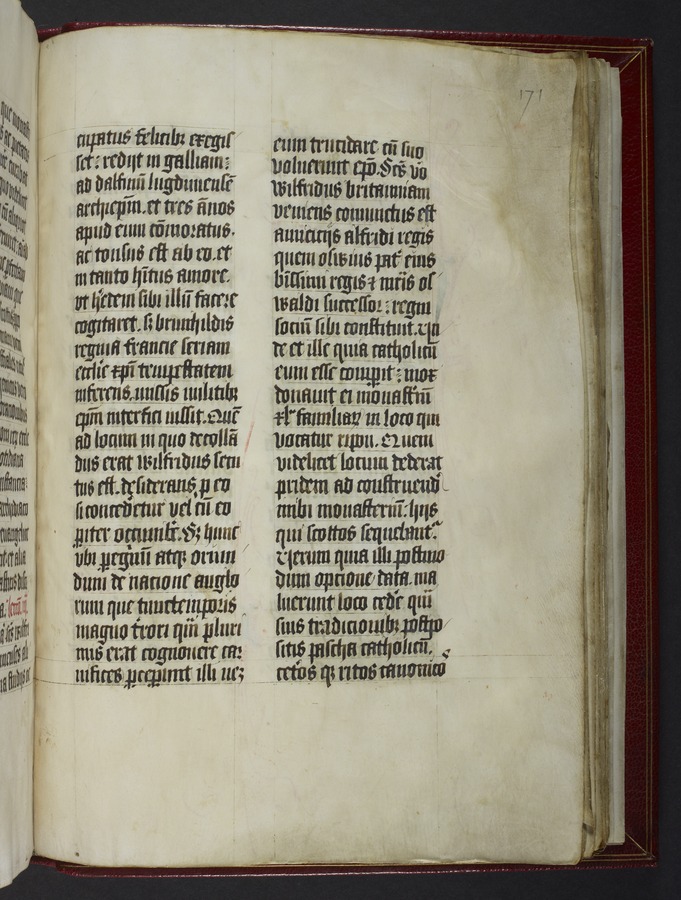 171
cupatus feliciter exegis
set: rediit in galliam:
ad dalfinū lugdunensē
archiepm̄. et tres ānos
apud eum cōmoratus.
ac tonsus est ab eo. et
in tanto hītus amore.
vt h̄edem sibi illū facere
cogitaret. sꝫ brunhildis
regina francie seriam
ecclīe xpī tempestatem
inferens. missis militibꝫ
ep̄m interfici iussit. Quē
ad locum in quo decollā
dus erat wilfridus secu
tus est. desiderans ꝓ eo
si concedēetur vel cū eo
ꝑiter occumbē. Sꝫ hunc
vbi ꝑegnū atqꝫ oriun
dum de nacione anglo
rum que tunc temporis
magno t̄rori quī pluri
mis erat cognouere car
nifices ꝑceperunt illi nec
eum trucidare cū suo
voluerunt ep̄o. Scs̄ v̊o
wilfridus britanniam
veniens coniunctus est
amiciciis alfridi regis
quem oswius pat̄ eius
bn̄ssimi regis ⁊ mr̄is os
waldi successor: regni
sociū sibi constituit. Vn
de et ille quia catholicū
eum esse comperit: mox
donauit ei monastr̄iū
xl familiaꝝ in loco qui
vocatur ripun. Quem
videlicet locum dederat
pridem ad construendū
inibi monasteriū. hiis
qui scottos sequebant̄.
Verum quia illi postmo
dum opcione data. ma
luerunt loco cedē quā
suis tradicionibꝫ postpo
sitis pascha catholicū.
cet̄os qꝫ ritos canonico